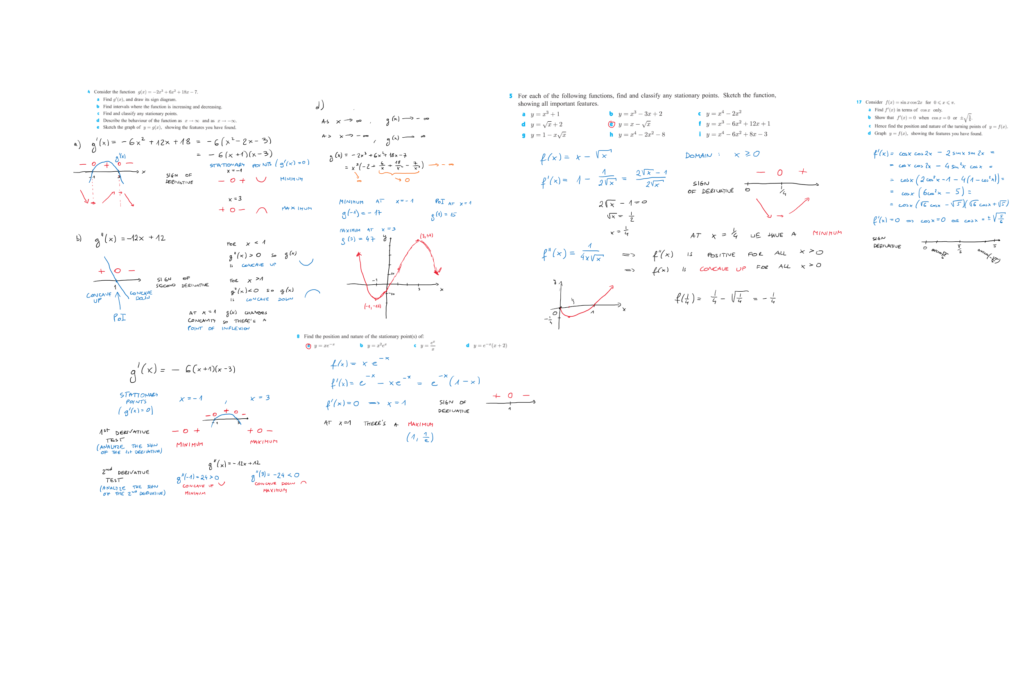 4 Consider the function g(x) = −2x³ + 6x² + 18x − 7.
a Find g′(x), and draw its sign diagram.
b Find intervals where the function is increasing and decreasing.
c Find and classify any stationary points.
d Describe the behaviour of the function as x → ∞ and as x → −∞.
e Sketch the graph of y = g(x), showing the features you have found.
a) g'(x) = − 6x² + 12x + 18 = − 6(x² − 2x − 3)
= − 6(x+1)(x−3)
g'(x)
− 0 + 0 −
x
STATIONARY POINTS (g'(x)=0)
SIGN OF DERIVATIVE
x = −1
− 0 + MINIMUM
x = 3
+ 0 − MAXIMUM
b) g"(x) = −12x + 12
+ 0 −
1
CONCAVE UP
CONCAVE DOWN
PoI
SIGN OF SECOND DERIVATIVE
FOR x < 1
g"(x) > 0 so g(x)
IS CONCAVE UP
FOR x > 1
g"(x) < 0 so g(x)
IS CONCAVE DOWN
AT x = 1 g(x) CHANGES
CONCAVITY SO THERE'S A
POINT OF INFLEXION
d)
AS x → ∞, g(x) → − ∞
AS x → − ∞, g(x) → ∞
g(x) = −2x³ + 6x² + 18x − 7
MINIMUM AT x = −1
g(−1) = −17
PoI AT x = 1
g(1) = 15
MAXIMUM AT x = 3
g(3) = 47
y
x
g'(x) = − 6(x+1)(x−3)
STATIONARY POINTS (g'(x)=0)
x = −1
x = 3
− 0 + 0 −
1ST DERIVATIVE TEST
(ANALYSE THE SIGN
OF THE 1st DERIVATIVE)
− 0 +
MINIMUM
+ 0 −
MAXIMUM
g"(x) = −12x + 12
2nd DERIVATIVE TEST
(ANALYSE THE SIGN
OF THE 2nd DERIVATIVE)
g"(−1) = 24 > 0
CONCAVE UP
MINIMUM
g"(3) = −24 < 0
CONCAVE DOWN
MAXIMUM
Find the position and nature of the stationary point(s) of:
a y = xe⁻ˣ
b y = x²eˣ
c y = eˣ/x
d y = e⁻ˣ(x + 2)
f(x) = x e⁻ˣ
f'(x) = e⁻ˣ − xe⁻ˣ = e⁻ˣ (1−x)
f'(x) = 0 ⟹ x = 1
SIGN OF DERIVATIVE
+ 0 −
1
AT x=1 THERE'S A MAXIMUM
(1, 1/e)
5 For each of the following functions, find and classify any stationary points. Sketch the function,
showing all important features.
a y = x² + 1
b y = x³ − 3x + 2
c y = x⁴ − 2x²
d y = √x + 2
e y = x − √x
f y = x³ − 6x² + 12x + 1
g y = 1 − x√x
h y = x⁴ − 2x² − 8
i y = x⁴ − 6x² + 8x − 3
f(x) = x − √x
DOMAIN: x ≥ 0
f'(x) = 1 − 1/(2√x) = (2√x − 1)/(2√x)
2√x − 1 = 0
√x = 1/2
x = 1/4
SIGN OF DERIVATIVE
− 0 +
0 1/4
AT x = 1/4 WE HAVE A MINIMUM
f"(x) = 1/(4x√x) ⟹ f"(x) IS POSITIVE FOR ALL x > 0
⟹ f(x) IS CONCAVE UP FOR ALL x > 0
f(1/4) = 1/4 − √(1/4) = − 1/4
y
x
0
−1/4
1/4
1
17 Consider f(x) = sin x cos 2x for 0 ≤ x ≤ π.
a Find f′(x) in terms of cos x only.
b Show that f′(x) = 0 when cos x = 0 or ±√(5/6).
c Hence find the position and nature of the turning points of y = f(x).
d Graph y = f(x), showing the features you have found.
f'(x) = cosx cos2x − 2 sinx sin2x =
= cosx cos2x − 4 sin²x cosx =
= cosx (2cos²x − 1 − 4(1−cos²x)) =
= cosx (6cos²x − 5) =
= cosx (√6 cosx − √5)(√6 cosx + √5)
f'(x) = 0 ⟹ cosx = 0 OR cosx = ±√(5/6)
SIGN DERIVATIVE
0